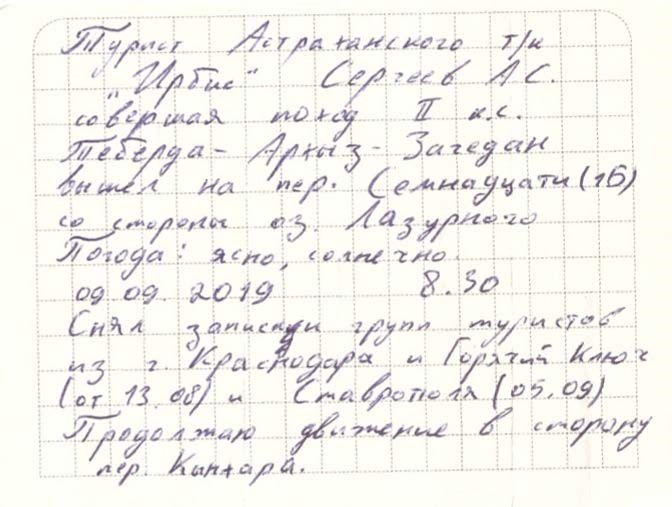 Турист Астраханского т/к
„Ирбис“ Сергеев А С.
совершая поход II к.с.
Теберда - Архыз - Загедан
вышел на пер. Семнадцати (1Б)
со стороны оз. Лазурного
Погода: ясно, солнечно.
09.09.2019 8.30
Снял записки групп туристов
из г. Краснодара и Горячий Ключ
(от 13.08) и Ставрополя (05.09)
Продолжаю движение в сторону
пер. Кынхара.